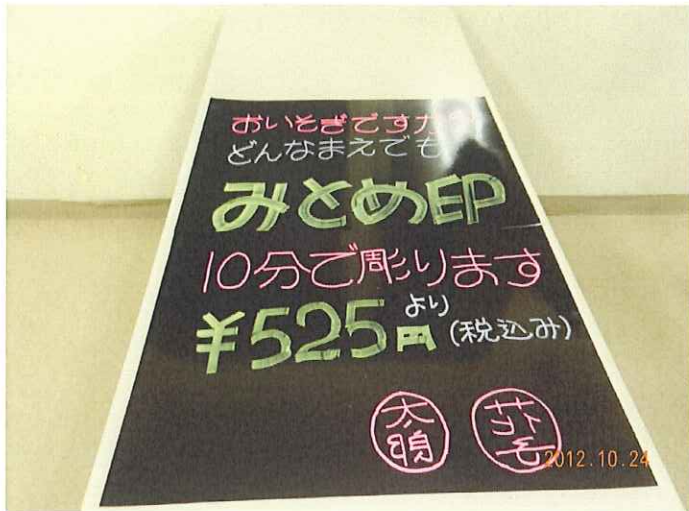 おいそぎですか?
どんなまえでも
みとめ印
10分で彫ります
¥525円より(税込み)
2012.10.24